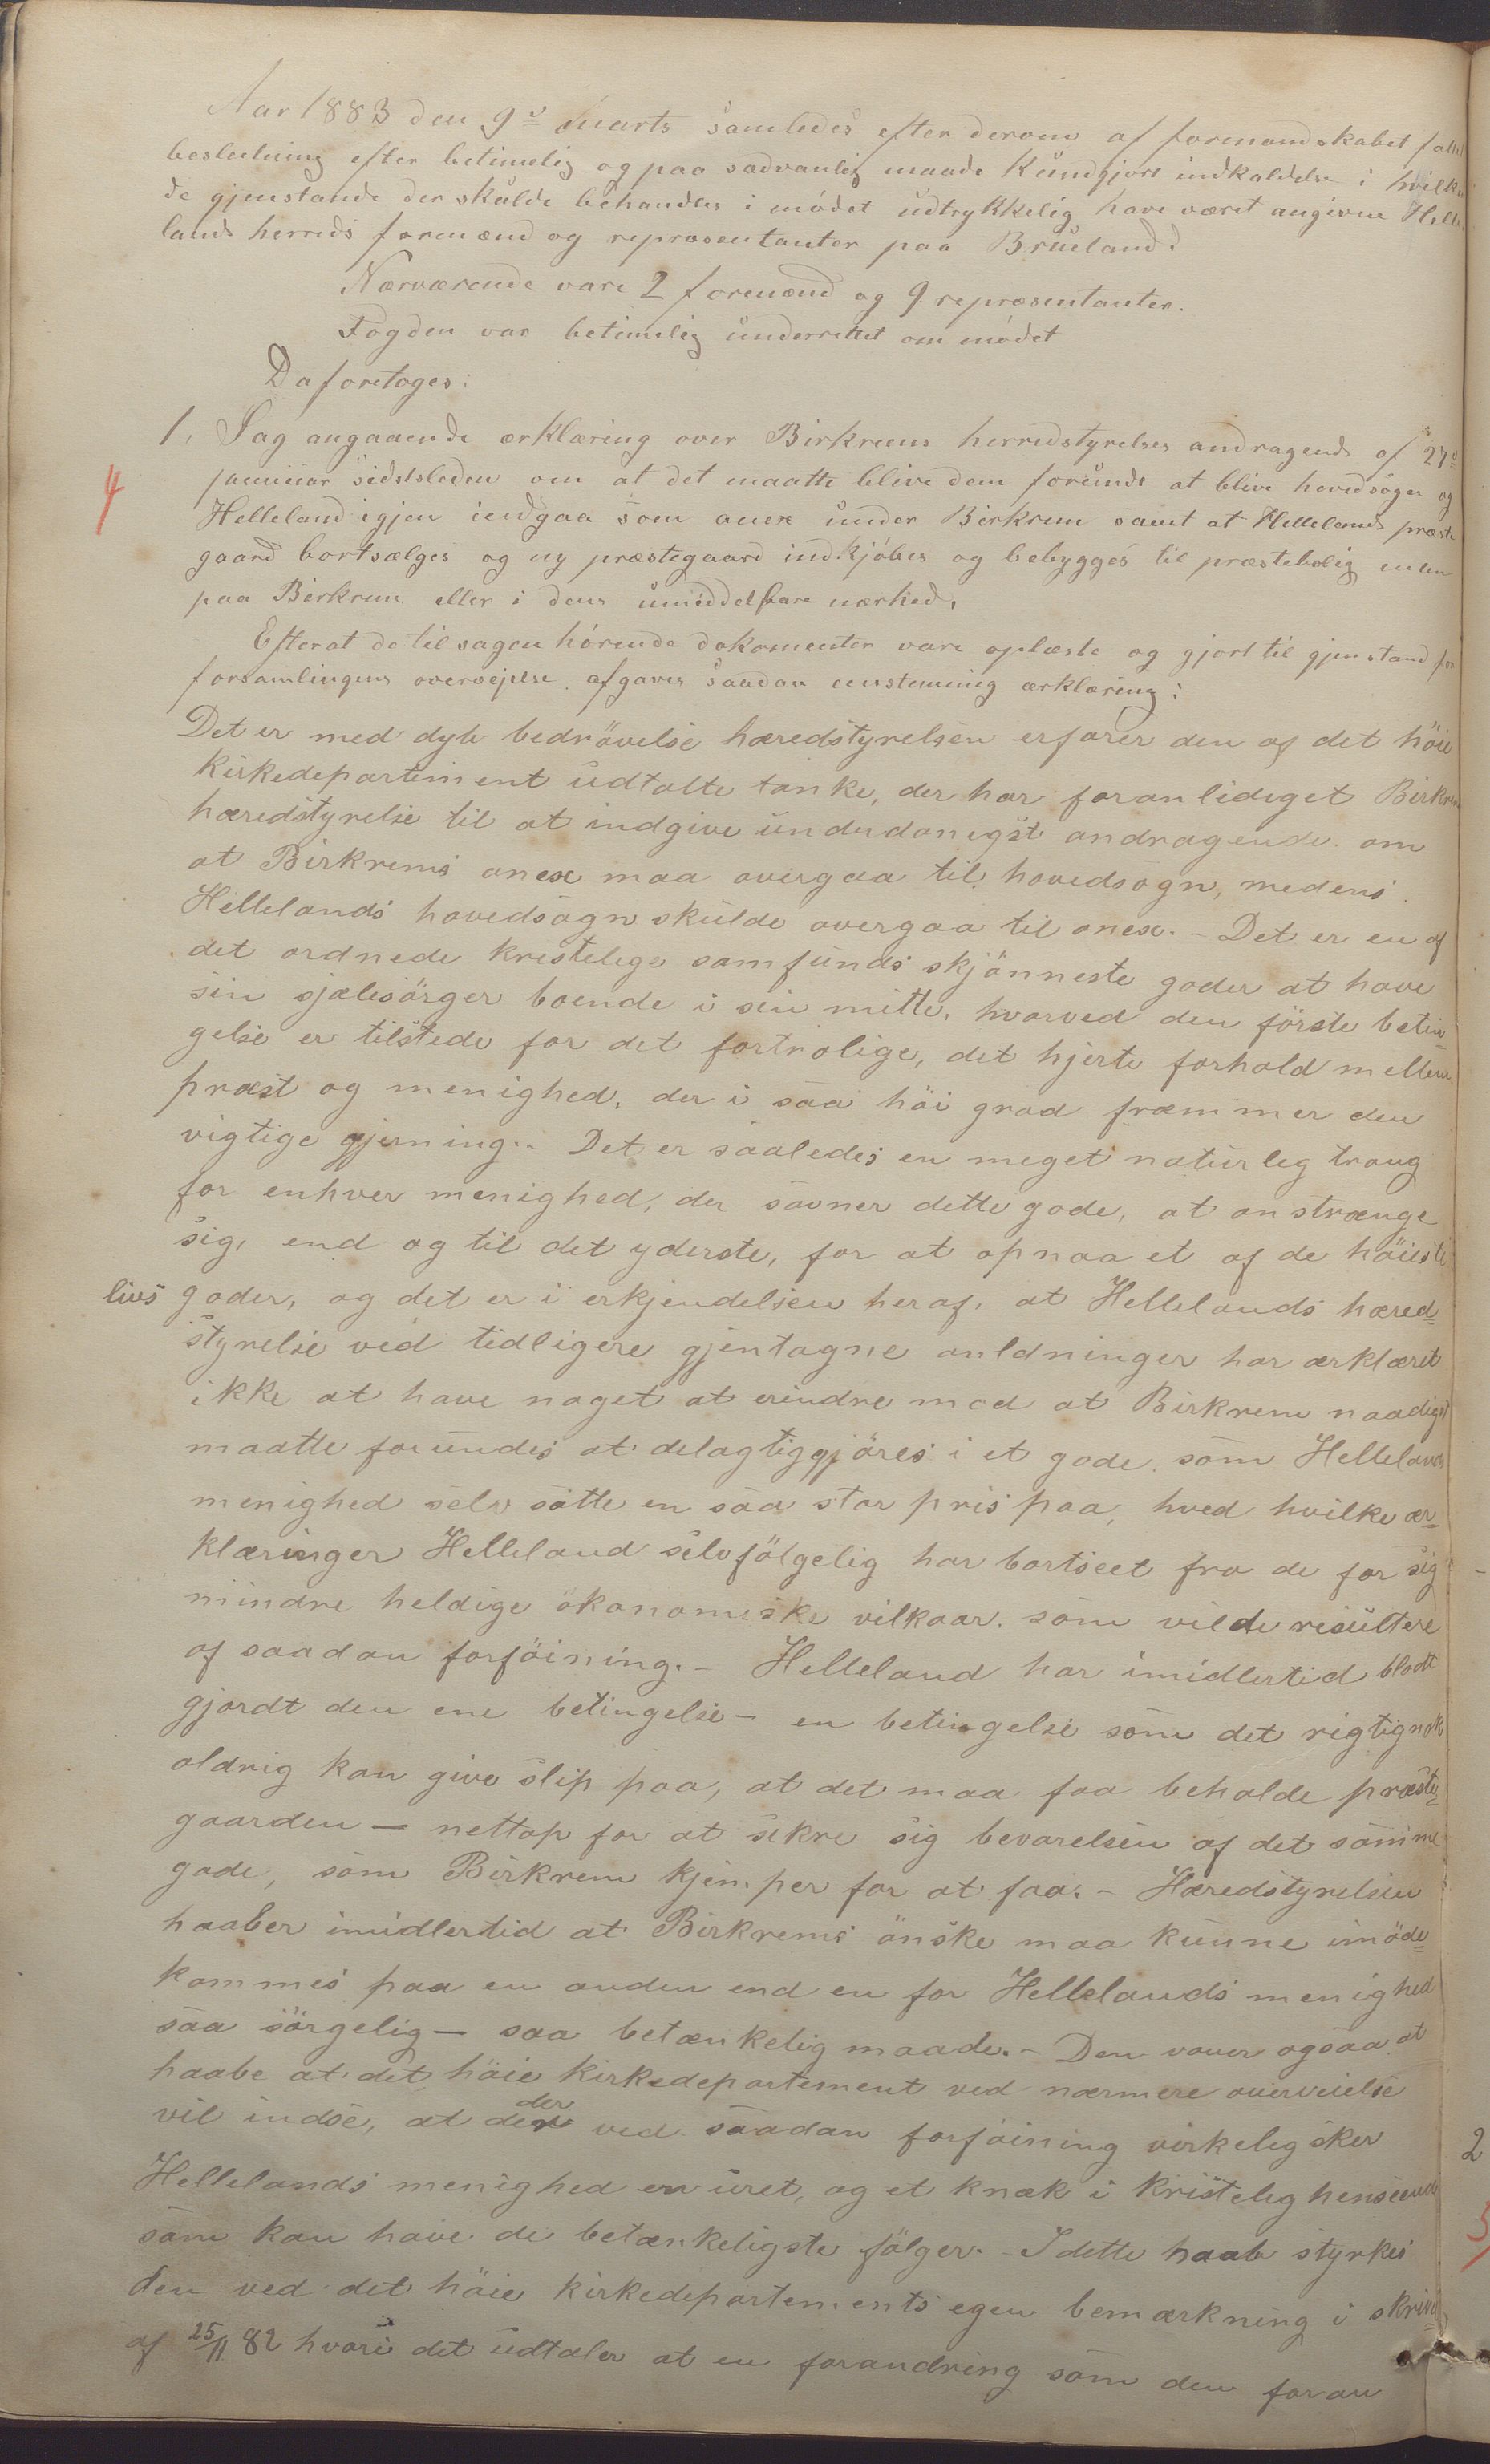 Aar 1883 den 9de marts samledes efter derom af formandskabet fatte
besledning efter betimelig og paa sædvanlig maade kundgjort indkaldelse i hvilken
de gjenstande der skulde behandles i mødet udtrykkelig have været angivne Helle-
lands herreds formænd og repræsentanter paa Brueland.
Nærværende vare 2 formænd og 9 repræsentanter.
Fogden var betimelig underrettet om mødet
Da foretoges:
1. Sag angaaende ærklæring over Birkrems herredstyrelses andragende af 27de
4 januar sidstsleden om at det maatte blive dem forunde at blive hovedsogn og
Helleland igjen indgaa som anex under Birkrem samt at Hellelands præste
gaard bortsælges og ny præstegaard indkjøbes og bebygges til præstebolig
paa Birkrem eller i dens umiddelbare nærhed.
Efter at de til sagen hørende dokomenter vare oplæste og gjort til gjenstand for
forsamlingens overvejelse afgaves saadan eenstemmig ærklæring:
Det er med dyb bedrövelse hæredstyrelsen erfarer den af det höie
kirkedepartement udtalte tanke, der har foranlediget Birkrem
hæredstyrelse til at indgive underdanigst andragende om
at Birkrems anex maa overgaa til hovedsogn, medens
Hellelands hovedsogn skulde overgaa til anex. - Det er en af
det ordnede kristelige samfunds skjönneste goder at have
sin sjælesörger boende i sin mitte, hvorved den förste betin-
gelse er tilstede for det fortrolige, det hjerte forhold mellem
præst og menighed, der i saa höi grad fræmmer den
vigtige gjerning. Det er saaledes en meget naturleg trang
for enhver menighed, der savner dette gode, at anstrænge
sig, end og til det yderste, for at opnaa et af de höieste
livs goder, og det er i erkjendelsen heraf, at Hellelands hæred-
styrelse ved tidligere gjentagne anldninger har ærklæret
ikke at have noget at erindre mod at Birkrem naadigst
maatte forundes at delagtiggjöres i et gode som Hellelands
menighed selv satte en saa stor pris paa, hved hvilke ær-
klæringer Helleland selvfölgelig har bortseet fra de for sig
mindre heldige ökonomiske vilkaar som vilde resultere
af saadan forföining. - Helleland har imidlertid blodt
gjordt den ene betingelse - en betingelse som det rigtignok
aldrig kan give slip paa, at det maa faa beholde præste-
gaarden - nettop for at sikre sig bevarelsen af det samme
gode, som Birkrem kjemper for at faa. - Hæredstyrelsen
haaber imidlertid at Birkrems önske maa kunne imöde-
kommes paa en anden end en for Hellelands menighed
saa sörgelig - saa betænkelig maade. - Den vover ogsaa at
haabe at det höie kirkedepartement ved nærmere overveielse
vil indse, at der ved saadan forföining virkelig sker
Hellelands menighed en uret, og et knæk i kristeleg henseende
som kan have de betænkeligste fölger. - I dette haab styrkes
den ved det höie kirkedepartements egen bemærkning i skriv-
af 25/11 82 hvori det udtaler at en forandring som den foran